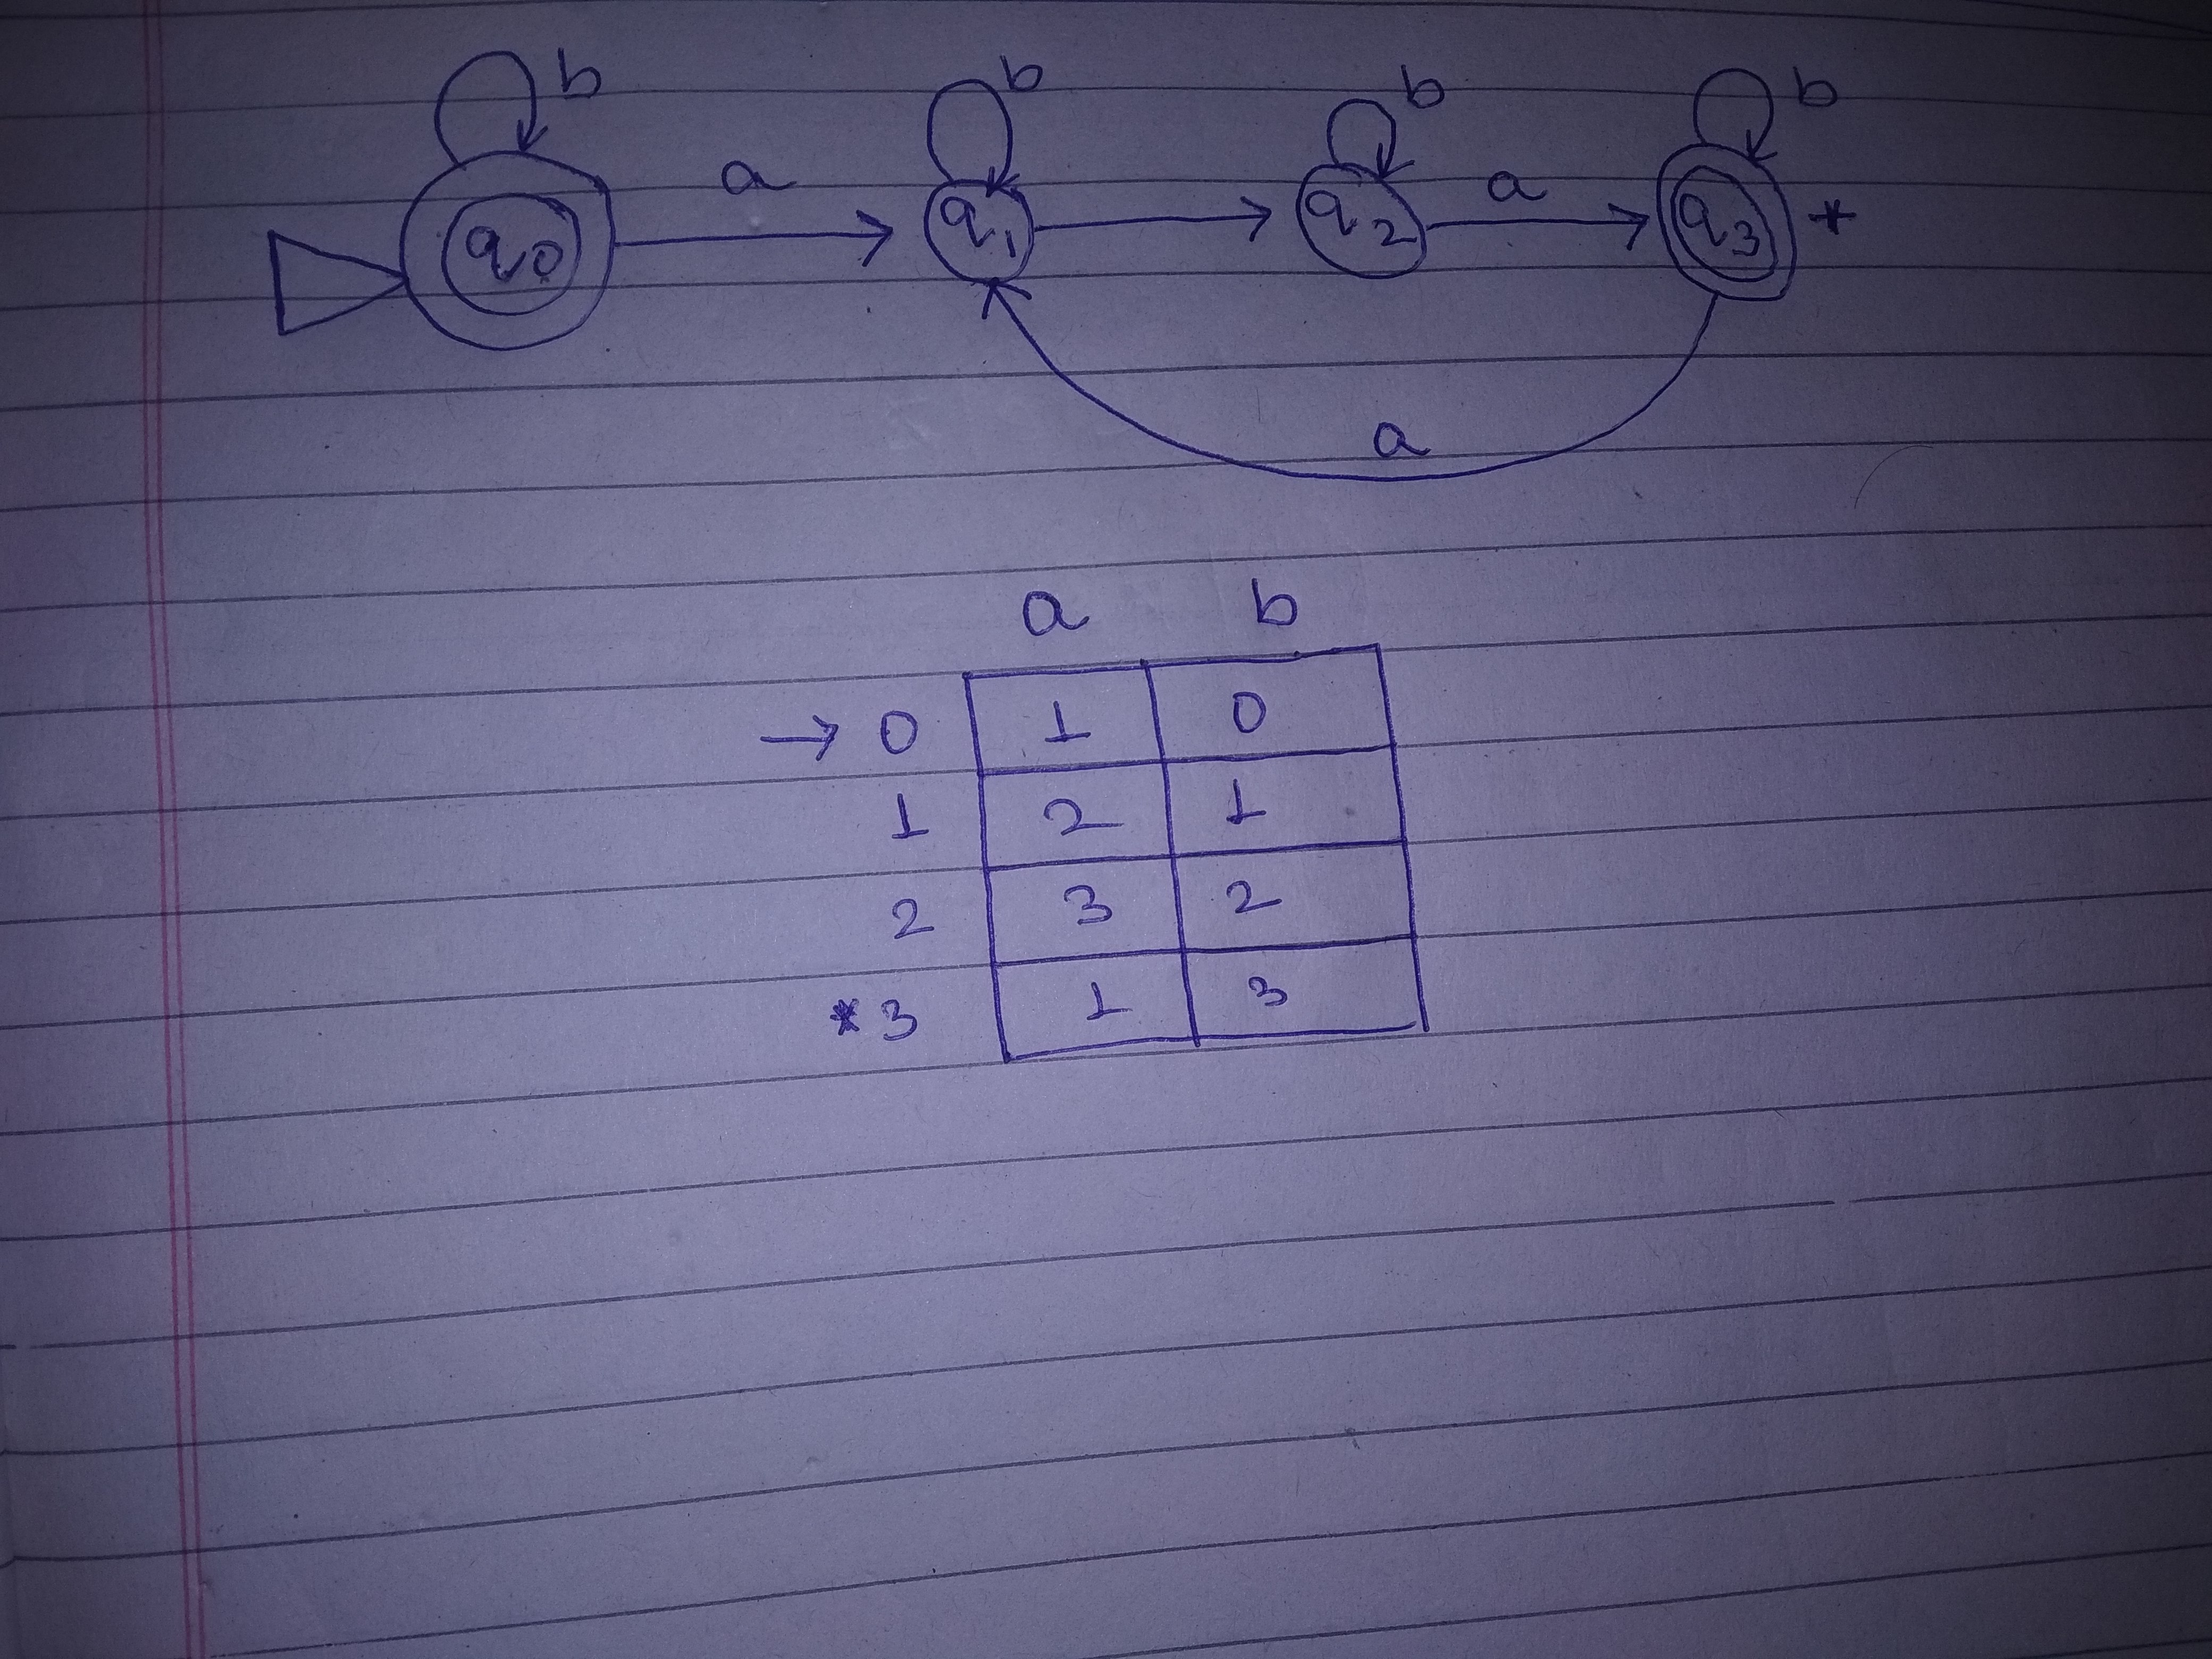 b b b b
a a
q0 q1 q2 q3 *
a
a b
→ 0 1 0
1 2 1
2 3 2
* 3 1 3